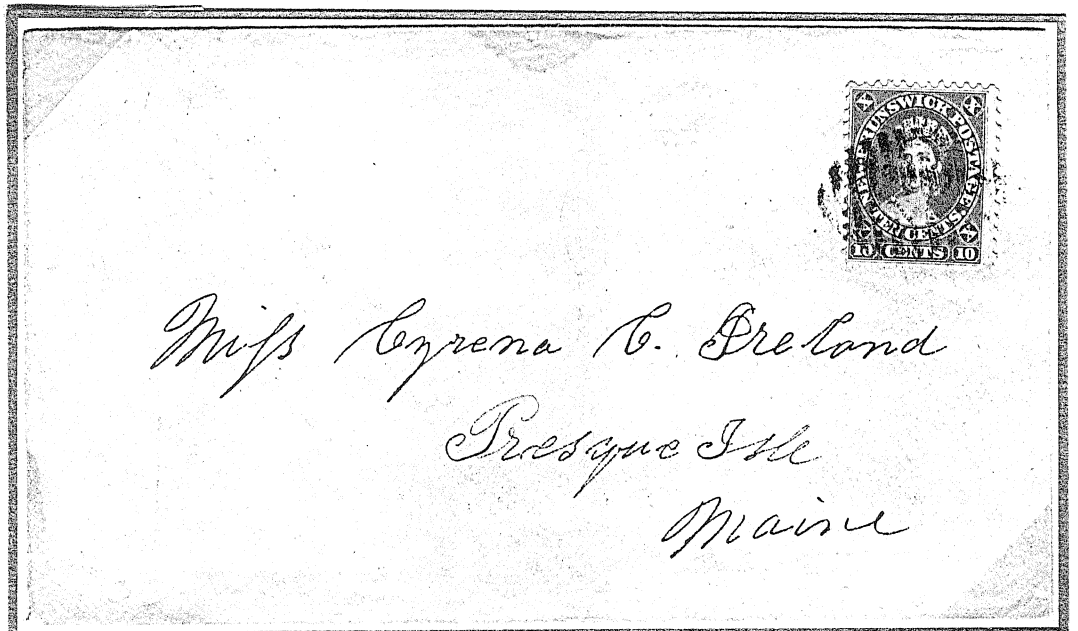 X X
NEW BRUNSWICK POSTAGE
TEN CENTS
10 CENTS 10
Miss Cyrena C. Ireland
Presque Isle
Maine